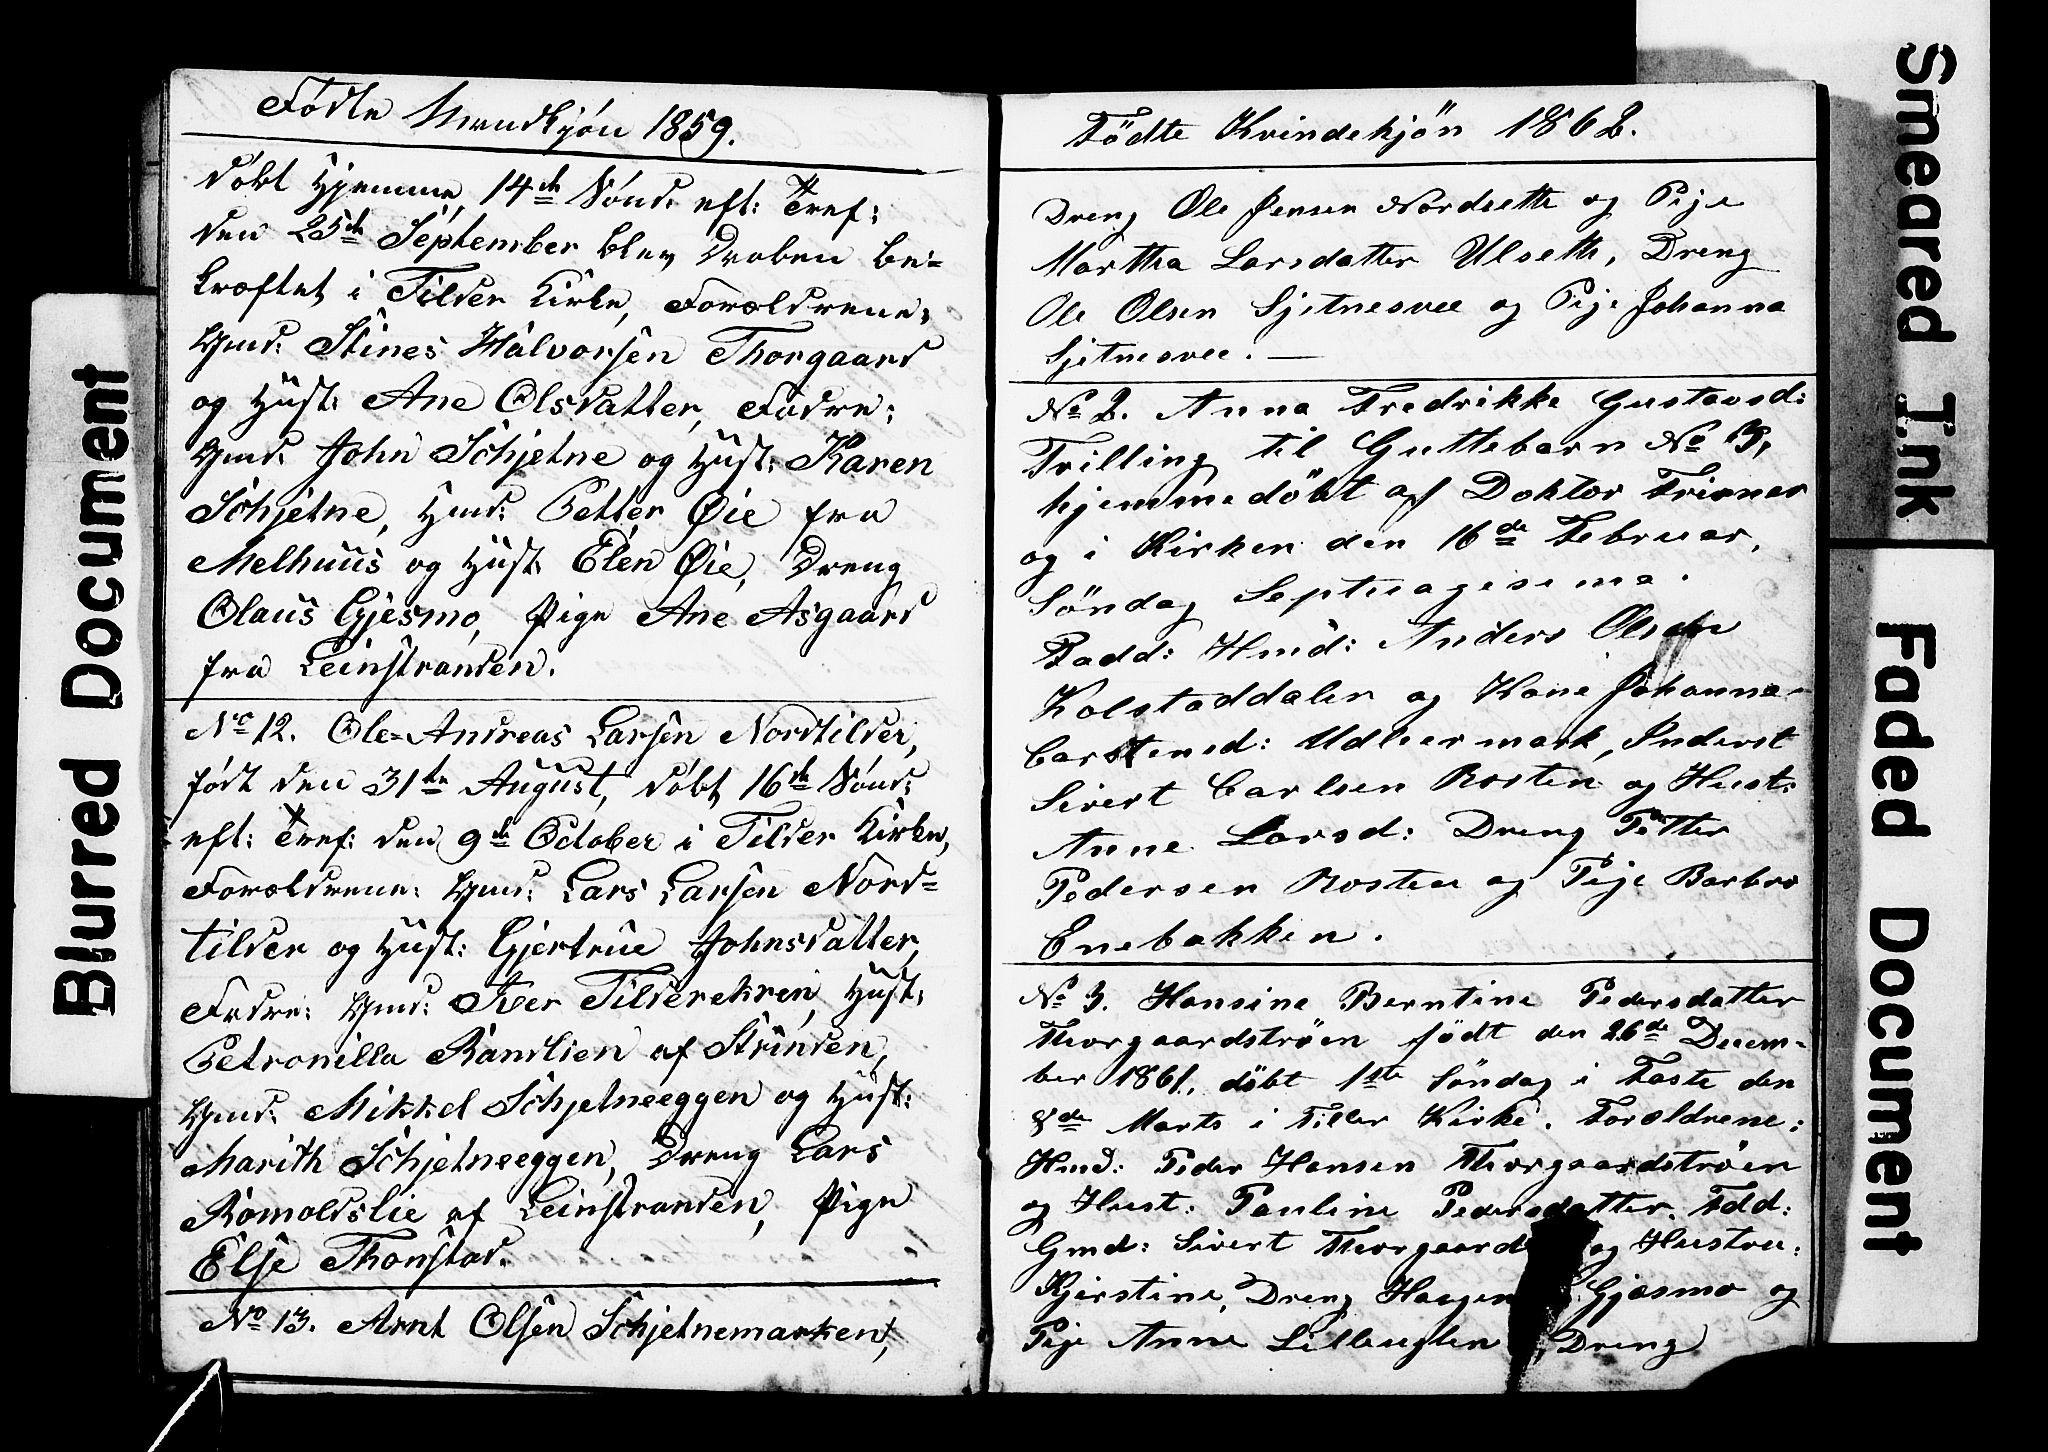 Fødte Mandkjøn 1859.
døbt hjemme, 14de Sønd: eft: Tref:
den 25de September blev Daaben be=
kræftet i Tilder Kirke, Forældrene:
Gmd: Stines Halvorsen Thorgaard
og Hust: Ane Olsdatter, Fadre:
Gmd: John Schjetne og Hust: Karen
Schjetne, Gmd: Petter Øie fra
Melhuus og Hust: Elen Øie, Dreng
Olaus Gjesmo, Pige Ane Asgaard
fra Leinstranden.
No 12. Ole Andreas Larsen Nordtilder,
født den 31te August, døbt 16de Sønd:
eft: Tref: den 9de October i Tilder Kirke,
Forældrene: Gmd: Lars Larsen Nord=
tilder og Hust: Gjertrue Johnsdatter,
Fadre: Gmd: Iver Tilderekren, Hust:
Petronilla Ranslien af Strinden,
Gmd: Mikkel Schjetneeggen og Hust:
Marith Schjetneeggen, Dreng Lars
Romoldslie af Leinstranden, Pige
Elsje Thonstad.
No 13. Arnt Olsen Schjetnemarken,
Födte Kvindekjön 1862.
Dreng Ole Jensen Nordseth og Pige
Martha Larsdatter Ulseth, Dreng
Ole Olsen Sjetnesvee og Pige Johanna
Sjetnesvee. —
No 2. Anna Fredrikke Gustavsd:
Trilling til Guttebarn No 3,
hjemmedöbt af Doktor
og i Kirken den 16de Februar,
Söndag Septuagesima.
Fadd: Hmd: Anders Olsen
Kolstaddalen og Kone Johanna
Carstensd: Udleermark, Inderst
Sivert Carlsen Rosten og Hust:
Anne Larsd: Dreng Petter
Pedersen Rosten og Pige Barbro
Enebakken.
No 3. Hansine Berntine Pedersdatter
Thorgaardströen født den 26de Decem-
ber 1861, döbt 1ste Söndag i Faste den
8de Marts i Tiller Kirke. Forældrene:
Hmd: Peder Hansen Thorgaardströen
og Hust: Pauline Pedersdatter. Fdd:
Gmd: Sivert Thorgaard og Hustru:
Kjerstine, Dreng Haagen Gjæsmo og
Pige Anne Lilleuglen, Dreng
Blurred Document
Smeared Ink
Faded Document